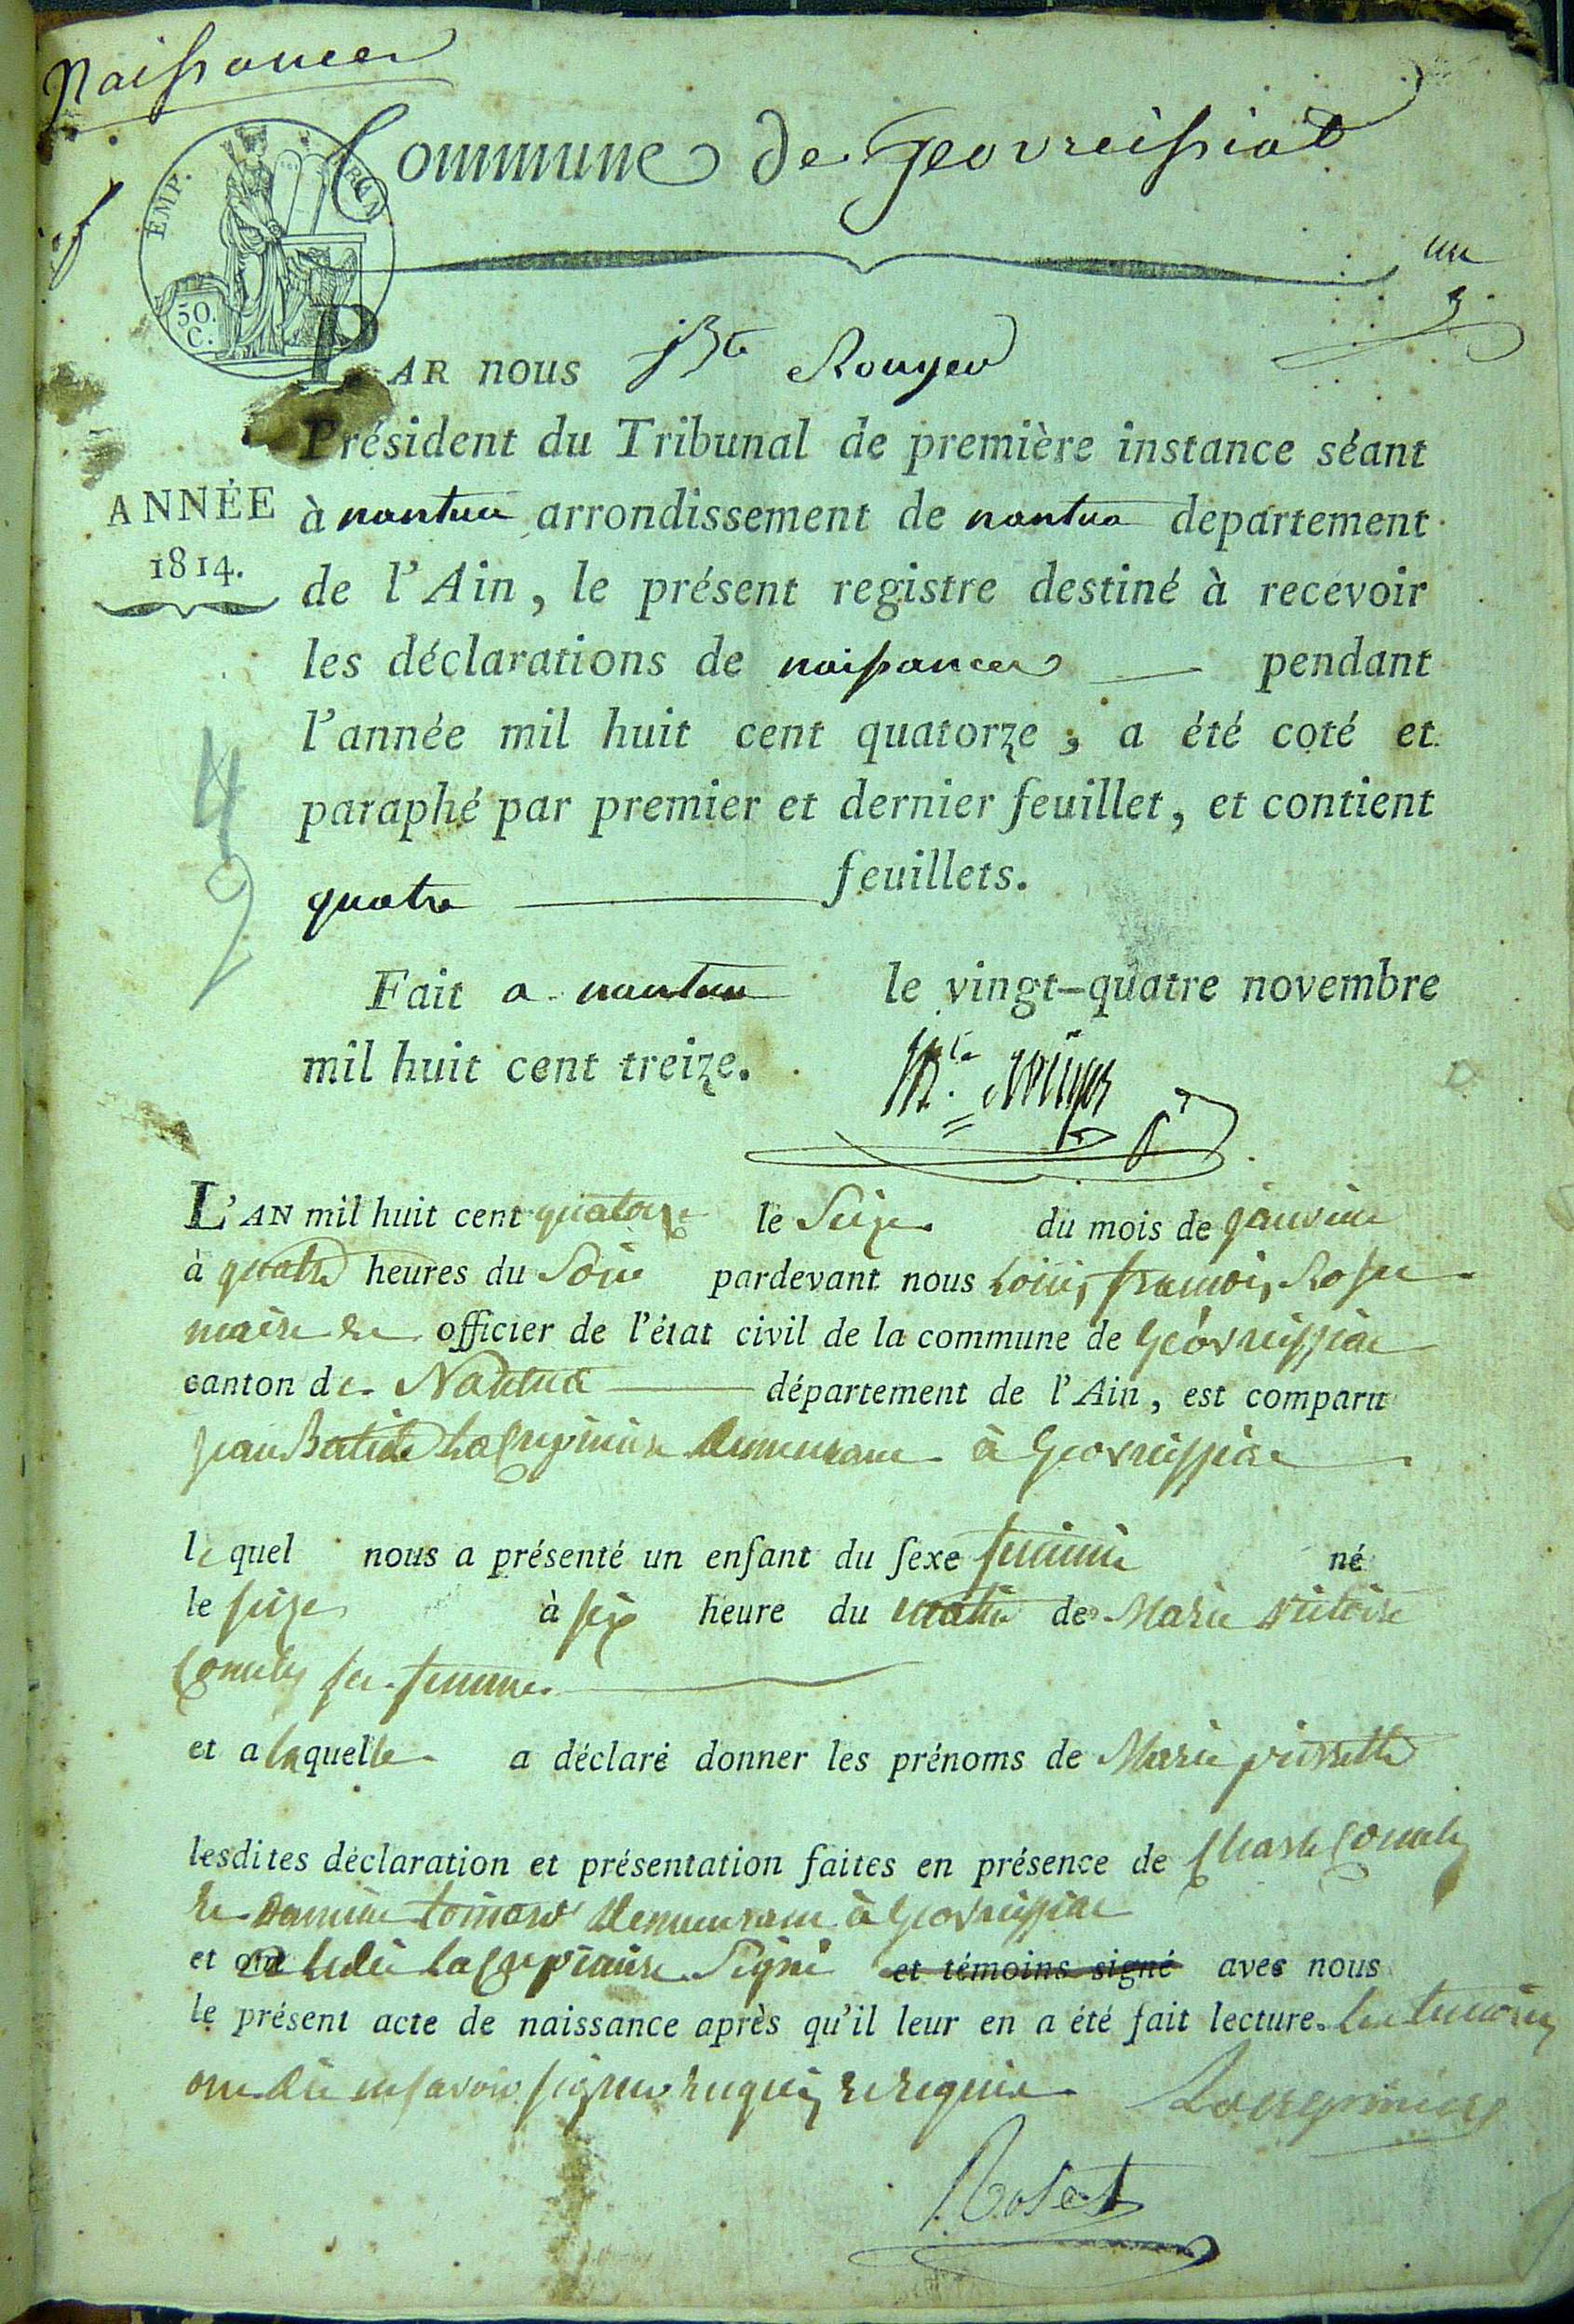 Naissances
EMP. FRAN.
50. C.
Commune de Geovreissiat
un
PAR nous Bte Rouyer
Président du Tribunal de première instance séant
ANNÉE
1814.
à nantua arrondissement de nantua departement
de l'Ain, le présent registre destiné à recevoir
les déclarations de naissances pendant
l'année mil huit cent quatorze, a été coté et
paraphé par premier et dernier feuillet, et contient
quatre feuillets.
4
Fait a nantua le vingt-quatre novembre
mil huit cent treize.
L'AN mil huit cent quatorze le Seize du mois de janvier
à quatre heures du Soir pardevant nous Louis françois Roset
maire et officier de l'état civil de la commune de Géovreissiat
canton de Nantua département de l'Ain, est comparu
jean Batiste demeurant à Geovreissiat
lequel nous a présenté un enfant du sexe feminin né
le seize à six heure du matin de Marie victoire
sa femme
et a laquelle a déclaré donner les prénoms de Marie pierrette
lesdites déclaration et présentation faites en présence de Charle
et demeurant à Geovreissiat
et ledit Signé et témoins signé avec nous
le présent acte de naissance après qu'il leur en a été fait lecture. Les temoins
ont dit ne savoir signer enquis et requis
Roset